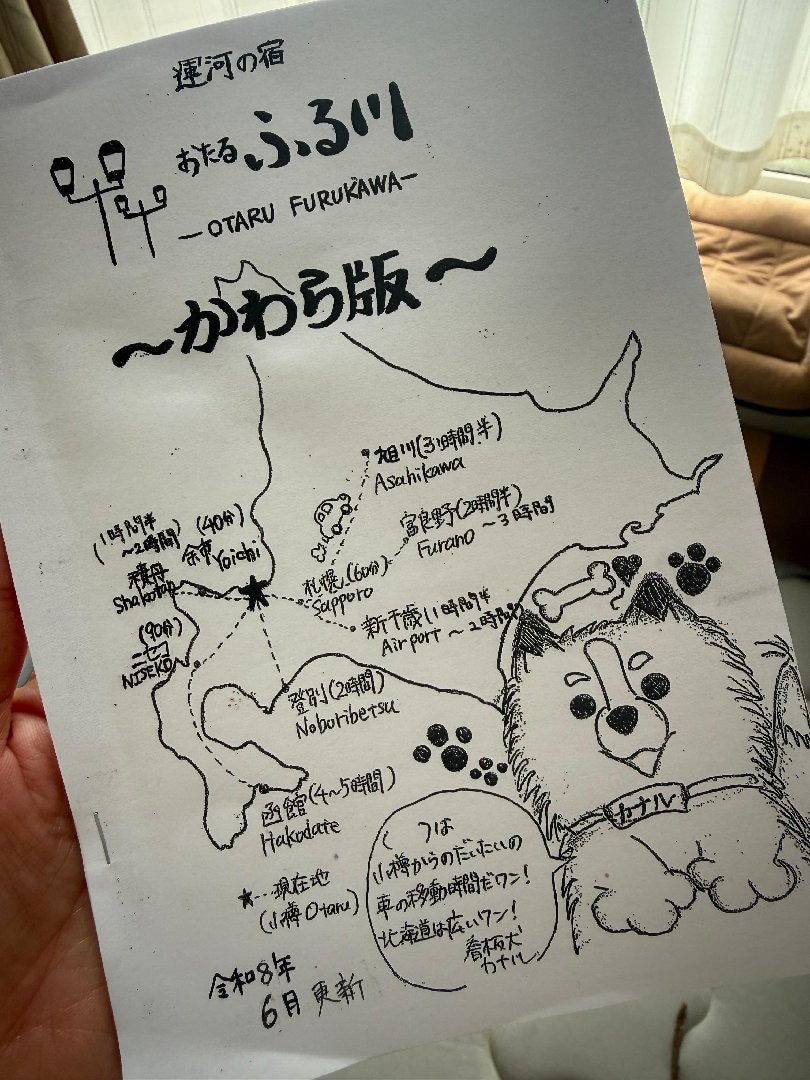 運河の宿
おたる ふる川
—OTARU FURUKAWA—
～かわら版～
旭川(3時間半)
Asahikawa
富良野(2時間半)
Furano ～3時間
(1時間半
～2時間)
積丹
Shakotan
(40分)
余市 Yoichi
札幌(60分)
Sapporo
新千歳(1時間半
Airport ～2時間)
(90分)
ニセコ
NISEKO
登別(2時間)
Noboribetsu
函館(4～5時間)
Hakodate
カナル
★…現在地
(小樽 Otaru)
( )は
小樽からのだいたいの
車の移動時間だワン!
北海道は広いワン!
看板犬
カナル
令和8年
6月更新